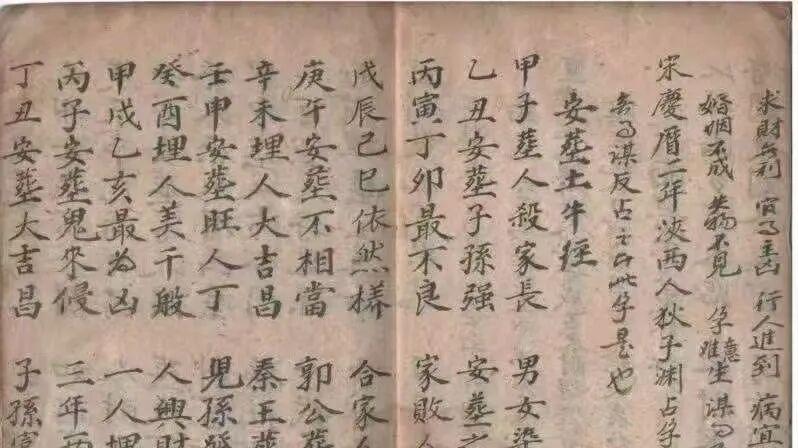 求財無利 官司主凶 行人進到 病宜
婚姻不成 失物不見 孕難生 謀
宋慶曆二年陝西人狄子渊占孕
安葬土牛經
甲子葬人殺家長 男女染
乙丑安葬子孫强 安葬之
丙寅丁卯最不良 家敗人
戊辰己巳依然樣 合家人
庚午安葬不相當 郭公葬
辛未埋人大吉昌 秦王葬
壬申安葬旺人丁 兒孫
癸酉埋人美千般 人興財
甲戌乙亥最為凶 一人埋
丙子安葬鬼來侵 三年
丁丑安葬大吉昌 子孫富